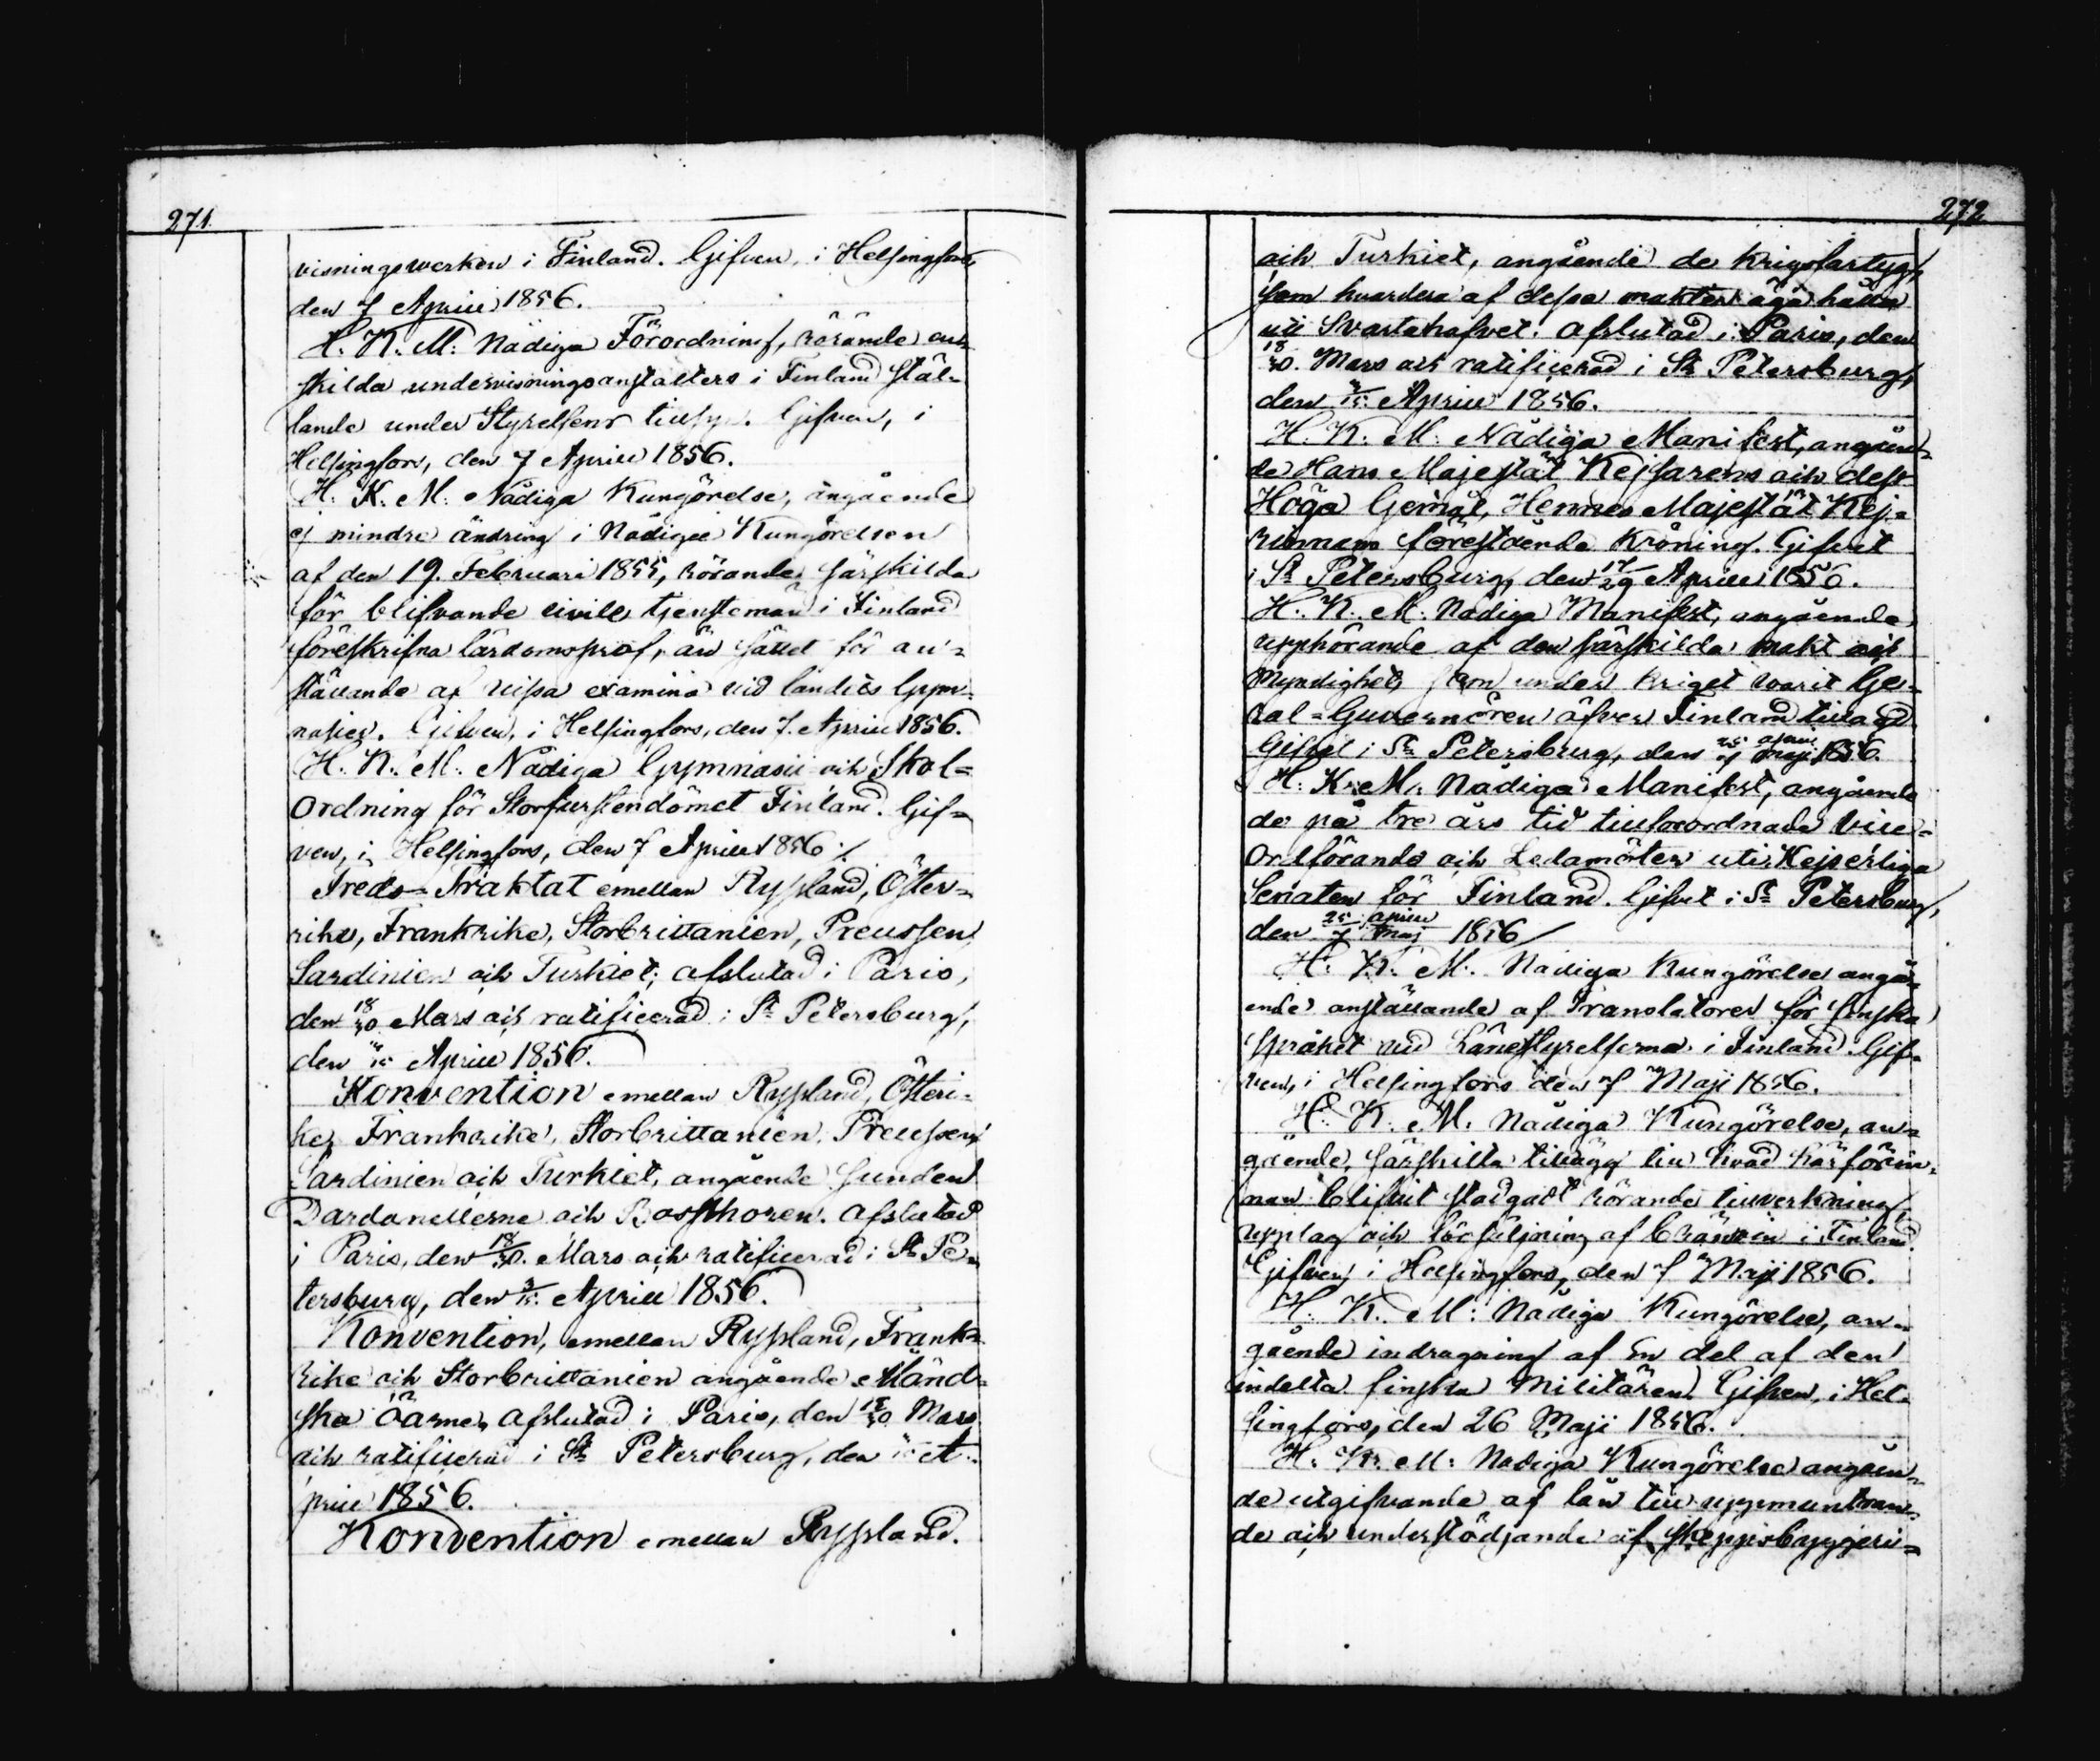 271.
visningswerken i Finland. Gifven, i Helsingfors,
den 7 April 1856.
H. K. M: Nådiga Förordning, rörande en-
skilda undervisningsanstalters i Finland stäl-
lande under Styrelsens tillsyn. Gifven, i
Helsingfors, den 7 April 1856.
H. K. M: Nådiga Kungörelse, angående
ej mindre ändring i Nådiga Kungörelsen
af den 19. Februari 1855, rörande särskilda
för blifvande civile tjenstemän i Finland
föreskrifna lärdomsprof, än sättet för an-
ställande af vissa examina vid landets Gym-
nasier. Gifven, i Helsingfors, den 7. April 1856.
H. K. M: Nådiga Gymnasii och Skol-
Ordning för Storfurstendömet Finland. Gif-
ven, i Helsingfors, den 7 April 1856 ⁒
Freds-Traktat emellan Ryssland, Öster-
rike, Frankrike, Storbrittanien, Preussen
Sardinien och Turkiet; afslutad i Paris,
den 18/30 Mars och ratificerad i St Petersburg,
den 3/15 April 1856.
Konvention emellan Ryssland, Österi-
ke, Frankrike, Storbrittanien, Preussen
Sardinien och Turkiet, angående sunden
Dardanellerne och Bosphoren. afslutad
i Paris, den 18/30. Mars och ratificerad i St Pe-
tersburg, den 3/15. April 1856.
Konvention, emellan Ryssland, Frank-
rike och Storbrittanien angående Åländ-
ska öarne, afslutad i Paris, den 18/30 Mars
och ratificerad i St Petersburg, den 3/15 A-
pril 1856.
Konvention emellan Ryssland.
272
och Turkiet, angående de krigsfartyg,
som hvardera af dessa makter äga hålla
uti Svartahafvet: afslutad i Paris, den
18/30. Mars och ratificerad i St Petersburg,
den 3/15. April 1856.
H. K. M: Nådiga Manifest, angåen-
de Hans Majestät Kejsarens och dess
Höga Gemål, Hennes Majestät Kej-
rinnans förestående Kröning. Gifvet
i St Petersburg, den 17/29 April 1856.
H. K. M: Nådiga Manifest, angående
upphörande af den särskilda makt och
Myndighet, som under kriget varit Ge-
ral-Guvernören öfver Finland tillagd
Gifvet i St Petersburg, den 25 april/7 Maji 1856.
H: K: M: Nådiga Manifest, angående
de på tre års tid tillförordnade Vice-
Ordförande och Ledamöter uti Kejserliga
Senaten för Finland. Gifvet i St Petersburg,
den 25 april/7 Maj 1856
H: K. M: Nådiga Kungörelse angå-
ende anställande af Translatorer för finska
språket vid Länestyrelserna i Finland. Gif-
ven, i Helsingfors den 7 Maji 1856.
H: K. M. Nådiga Kungörelse, an-
gående, särskilta tillägg till hvad härförin-
nan blifvit stadgadt rörande tillverkning,
upplag och försäljning af bränvin i Finland.
Gifven i Helsingfors, den 7 Maji 1856.
H. K. M: Nådiga Kungörelse, an-
gående indragning af En del af den
indelta finska Militären. Gifven, i Hel-
singfors, den 26 Maji 1856.
H: K. M: Nådiga Kungörelse angåen-
de utgifvande af lån till uppmuntran-
de och understödjande af skeppsbyggeri-